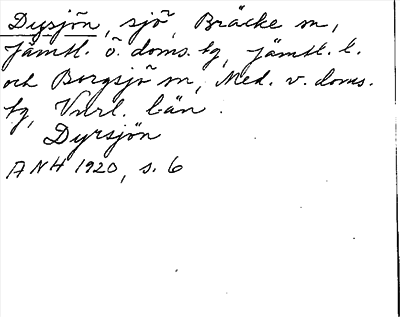 Dysjön, sjö, Bräcke sn,
Jämtl. ö. doms. tg, Jämtl. l.
och Borgsjö sn, Med. v. doms.
tg, Vnrl. län.
Dyrsjön
ANH 1920, s. 6